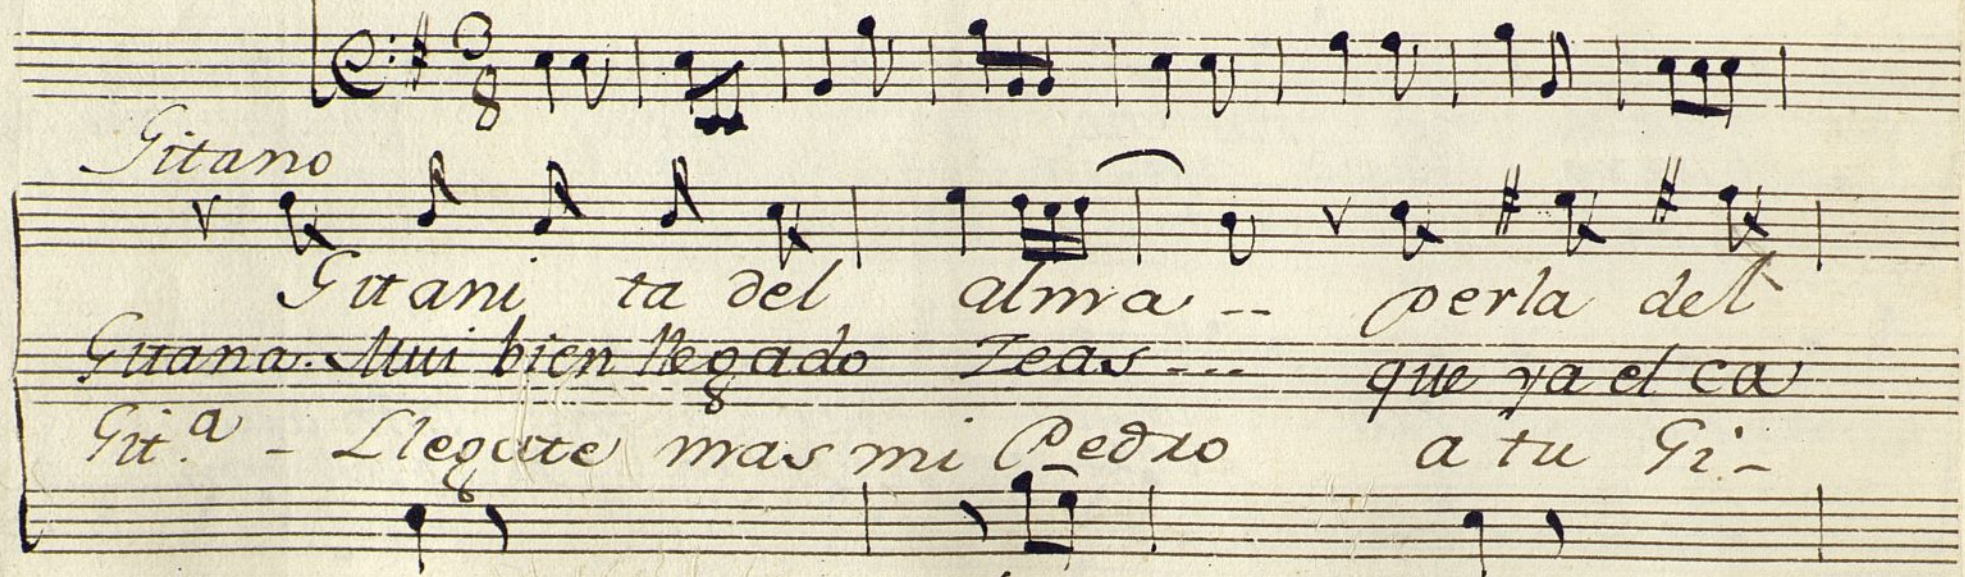 3
8
Gitano
Gitani ta del alma -- perla del
Gitana. Mui bien llegado Zeas --- que ya el ca
Git.a - Llegate mas mi Pedro a tu Gi-